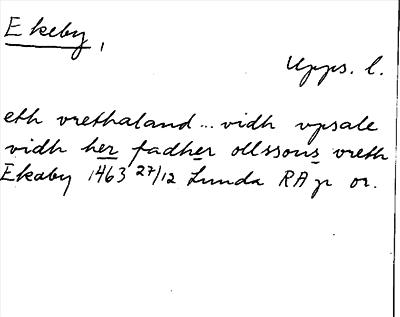 Ekeby,
Upps. l.
eth vrethaland... vidh vpsale
vidh her fadher ollssons vreth
Ekaby 1463 27/12 Lunda RAp or.